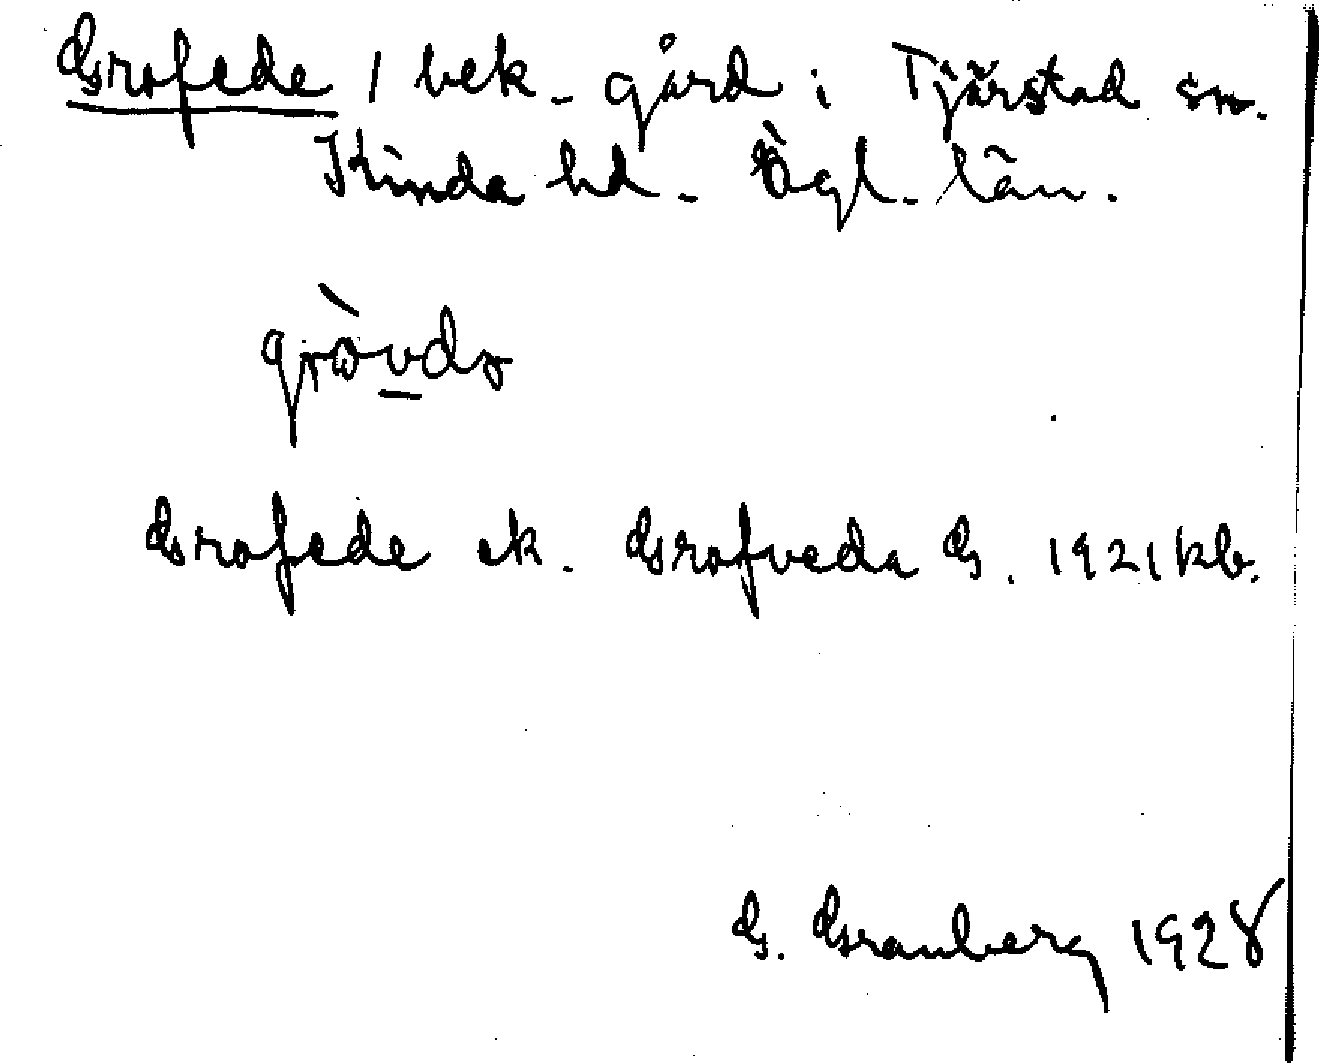 Grofede / bek. gård i Tjärstad sn.
Kinda hd. Ögl. län.
gròvdə
Grofede ek. Grofveda G. 1921 kb.
G. Granberg 1928